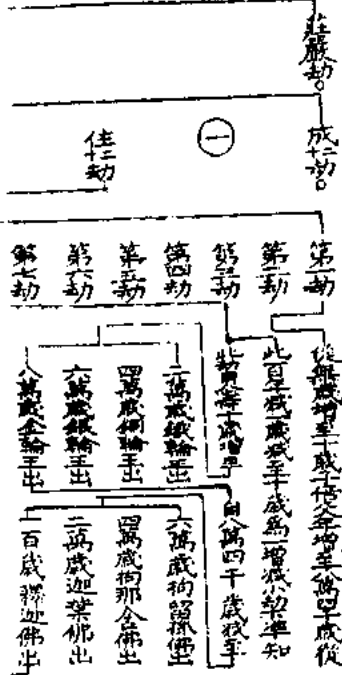 莊嚴劫。
成二十劫。
㊀
住二十劫
第一劫
第二劫
第三劫
第四劫
第五劫
第六劫
第七劫
從無歲增至十歲千倍父年增至八萬四千歲從
此百年減一歲減至十歲爲一增減小劫準知
自八萬四千歲減至
二萬歲鐵輪王出
四萬歲銅輪王出
六萬歲銀輪王出
八萬歲金輪王出
六萬歲拘留孫佛出
四萬歲拘那含佛出
二萬歲迦葉佛出
一百歲釋迦佛出